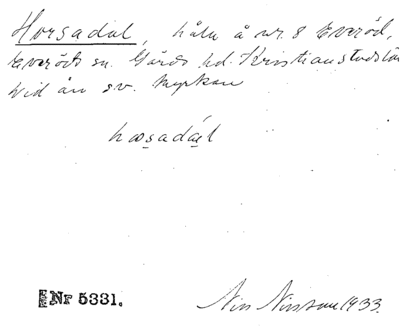 Horsadal, håla å nr. 8 Everöd,
Everöds sn. Gärds hd. Kristianstads län
Vid ån s.v. kyrkan
hosadál
Nr 5331.
Nils Nilsson 1933.